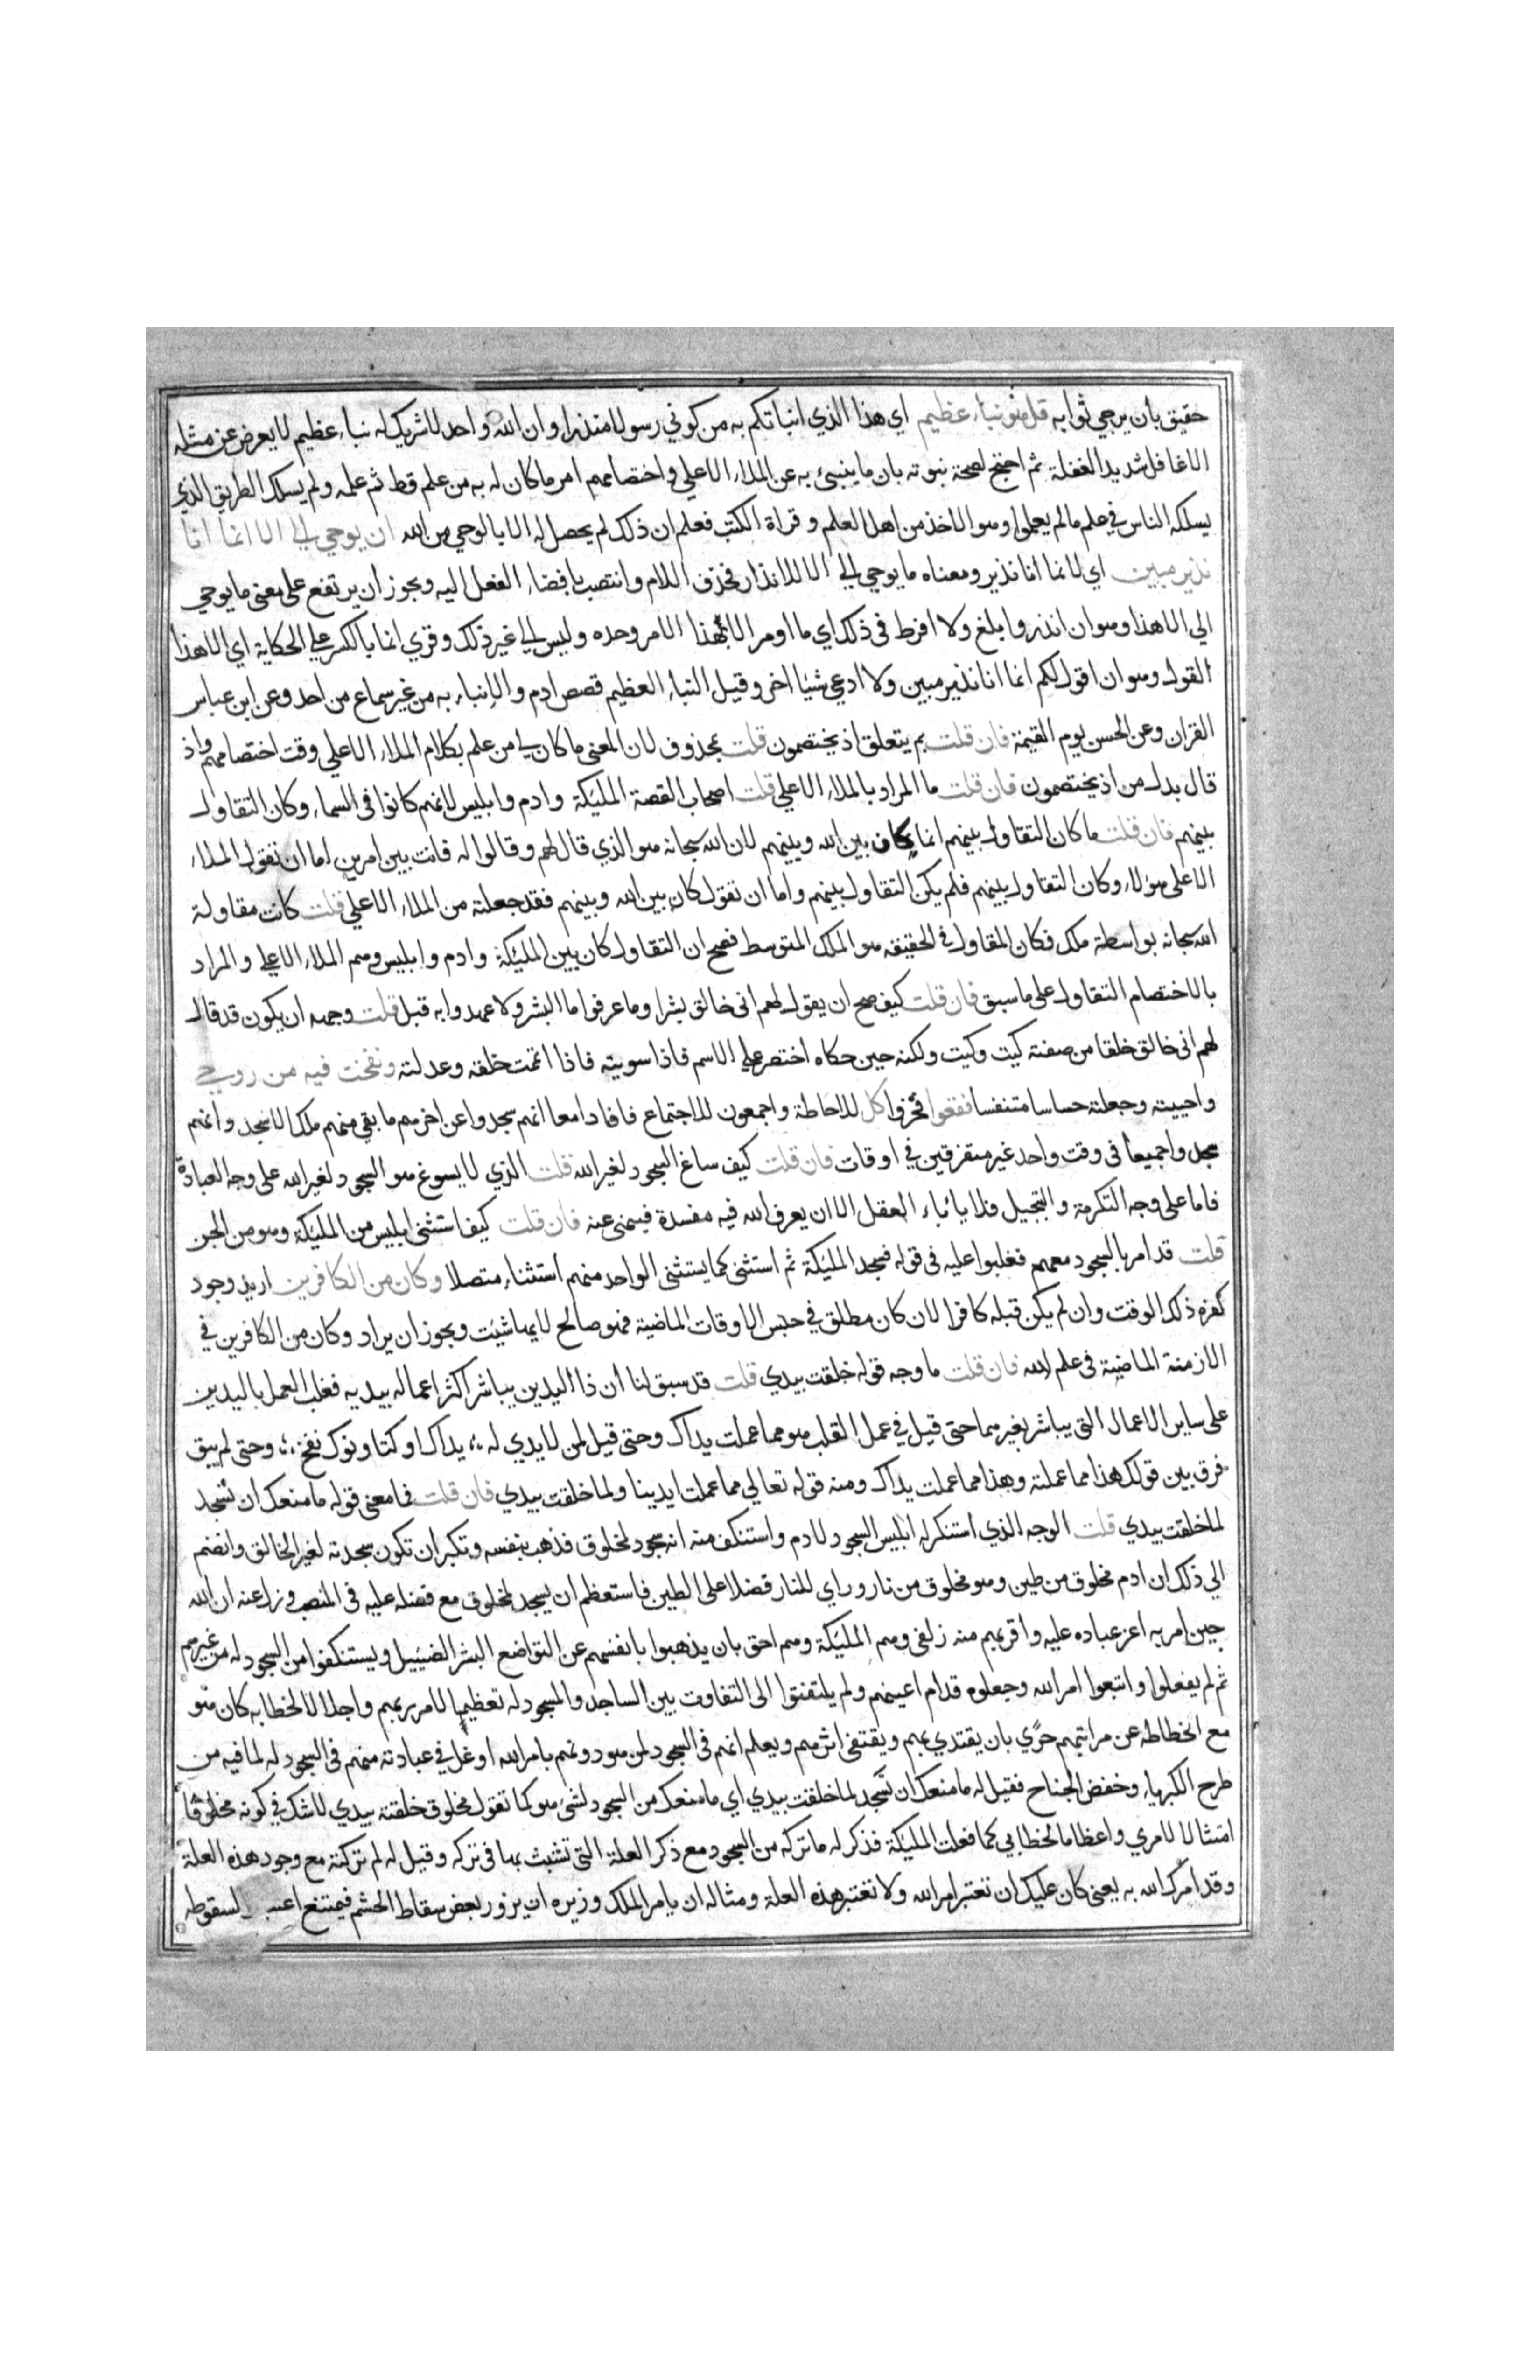 حقيق بأن يرجي ثوابه قل هو نباء عظيم اي هذا الذي انباتكم به من كوني رسولا منذرا وان الله واحد لا شريك له نباء عظيم لا يعرض عن مثله
الا غافل شديد الغفلة ثم احتج لصحة نبوته بان ما ينبئ به عن الملاء الاعلي واختصامهم امر ما كان له به من علم قط ثم علمه ولم يسلك الطريق الذي
يسلكه الناس في علم ما لم يعلموا وهو الاخذ من اهل العلم وقراة الكتب فعلم ان ذلك لم يحصل له الا بالوحي من الله ان يوحي الي الا انما انا
نذير مبين اي لانما انا نذير ومعناه ما يوحي الي الا للانذار فحذف اللام وانتصب بافضاء الفعل اليه ويجوز أن يرتفع على معنى ما يوحي
الي الا هذا وهو ان انذر وابلغ ولا افرط في ذلك اي ما اومر الا بهذا الامر وحده وليس الي غير ذلك وقري انما بالكسر علي الحكاية اي الا هذا
القول وهو ان اقول لكم انما انا نذير مبين ولا ادعي شيئا اخر وقيل النباء العظيم قصص ادم والانباء به من غير سماع من احد وعن ابن عباس
القران وعن الحسن يوم القيمة فان قلت بم يتعلق اذ يختصمون قلت بمحذوف لان المعنى ما كان لي من علم بكلام الملاء الاعلي وقت اختصامهم واذ
قال بدل من اذ يختصمون فان قلت ما المراد بالملاء الاعلي قلت اصحاب القصة المليكة وادم وابليس لانهم كانوا في السماء وكان التقاول
بينهم فان قلت ما كان التقاول بينهم انما كان بين الله وبينهم لان الله سبحانه هو الذي قال لهم وقالوا له فانت بين امرين اما ان تقول الملاء
الاعلي هولاء وكان التقاول بينهم فلم يكن التقاول بينهم واما ان تقول كان بين الله وبينهم فقد جعلته من الملاء الاعلي قلت كانت مقاولة
الله سبحانه بواسطة ملك فكان المقاول في الحقيقه هو الملك المتوسط فصح ان التقاول كان بين المليكة وادم وابليس وهم الملاء الاعلي والمراد
بالاختصام التقاول على ما سبق فان قلت كيف صح ان يقول لهم اني خالق بشرا وما عرفوا ما البشر ولا عهدوا به قبل قلت وجهه ان يكون قد قال
لهم اني خالق خلقا من صفته كيت وكيت ولكنه حين حكاه اختصر علي الاسم فاذا سويته فاذا اتممت خلقه وعدلته ونفخت فيه من روحي
واحييته وجعلته حساسا متنفسا فقعوا فخروا كل للاحاطة واجمعون للاجتماع فافادا معا انهم سجدوا عن اخرهم ما بقي منهم ملك الا سجد وانهم
سجدوا جميعا في وقت واحد غير متفرقين في اوقات فان قلت كيف ساغ السجود لغير الله قلت الذي لا يسوغ هو السجود لغير الله على وجه العبادة
فاما على وجه التكرمة والتبجيل فلا ياباه العقل الا ان يعرف الله فيه مفسدة فينهى عنه فان قلت كيف استثنى ابليس من المليكة وهو من الجن
قلت قد امر بالسجود معهم فغلبوا عليه في قوله فسجد المليكة ثم استثنى كما يستثنى الواحد منهم استثناء متصلا وكان من الكافرين اريد وجود
كفره ذلك الوقت وان لم يكن قبله كافرا لان كان مطلق في جنس الاوقات الماضية فهو صالح لايها شيت ويجوز ان يراد وكان من الكافرين في
الازمنة الماضية في علم الله فان قلت ما وجه قوله خلقت بيدي قلت قد سبق لنا أن ذا اليدين يباشر اكثر اعماله بيديه فغلب العمل باليدين
على ساير الاعمال التي يباشر بغيرهما حتى قيل في عمل القلب هو مما عملت يداك وحتى قيل لمن لا يدي له ؛ يداك اوكتا وفوك نفخ ؛ وحتى لم يبق
فرق بين قولك هذا مما عملته وهذا مما عملت يداك ومنه قوله تعالي مما عملت ايدينا ولما خلقت بيدي فان قلت فما معني قوله ما منعك ان تسجد
لما خلقت بيدي قلت الوجه الذي استنكر له ابليس السجود لادم واستنكف منه انه سجود لمخلوق فذهب بنفسه وتكبر ان تكون سجدته لغير الخالق وانضم
الي ذلك ان ادم مخلوق من طين وهو مخلوق من نار وراي للنار فضلا على الطين فاستعظم ان يسجد لمخلوق مع فضله عليه في المنصب وزل عنه ان الله
حين امر به اعز عباده عليه واقربهم منه زلفى وهم المليكة وهم احق بان يذهبوا بانفسهم عن التواضع البشر الضييل ويستنكفوا من السجود له من غيرهم
ثم لم يفعلوا واتبعوا امر الله وجعلوه قدام اعينهم ولم يلتفتوا الى التفاوت بين الساجد والمسجود له تعظيما لامر ربهم واجلالا لخطابه كان هو
مع انحطاطه عن مراتبهم حري بان يقتدي بهم ويقتفى اثرهم ويعلم انهم في السجود لمن هو دونهم بامر الله اوغل في عبادته منهم في السجود له لما فيه من
طرح الكبرياء وخفض الجناح فقيل له ما منعك ان تسجد لما خلقت بيدي اي ما منعك من السجود لشى هو كما تقول مخلوق خلقته بيدي لا شك في كونه مخلوقا
امتثالا لامري واعظاما لخطابي كما فعلت المليكة فذكر له ما تركه من السجود مع ذكر العلة التي تشبث بها في تركه وقيل له لم تركته مع وجود هذه العلة
وقد امرك الله به يعني كان عليك ان تعتبر امر الله ولا تعتبر هذه العلة ومثاله ان يامر الملك وزيره ان يزور بعض سقاط الحشم فيمتنع لسقوطه